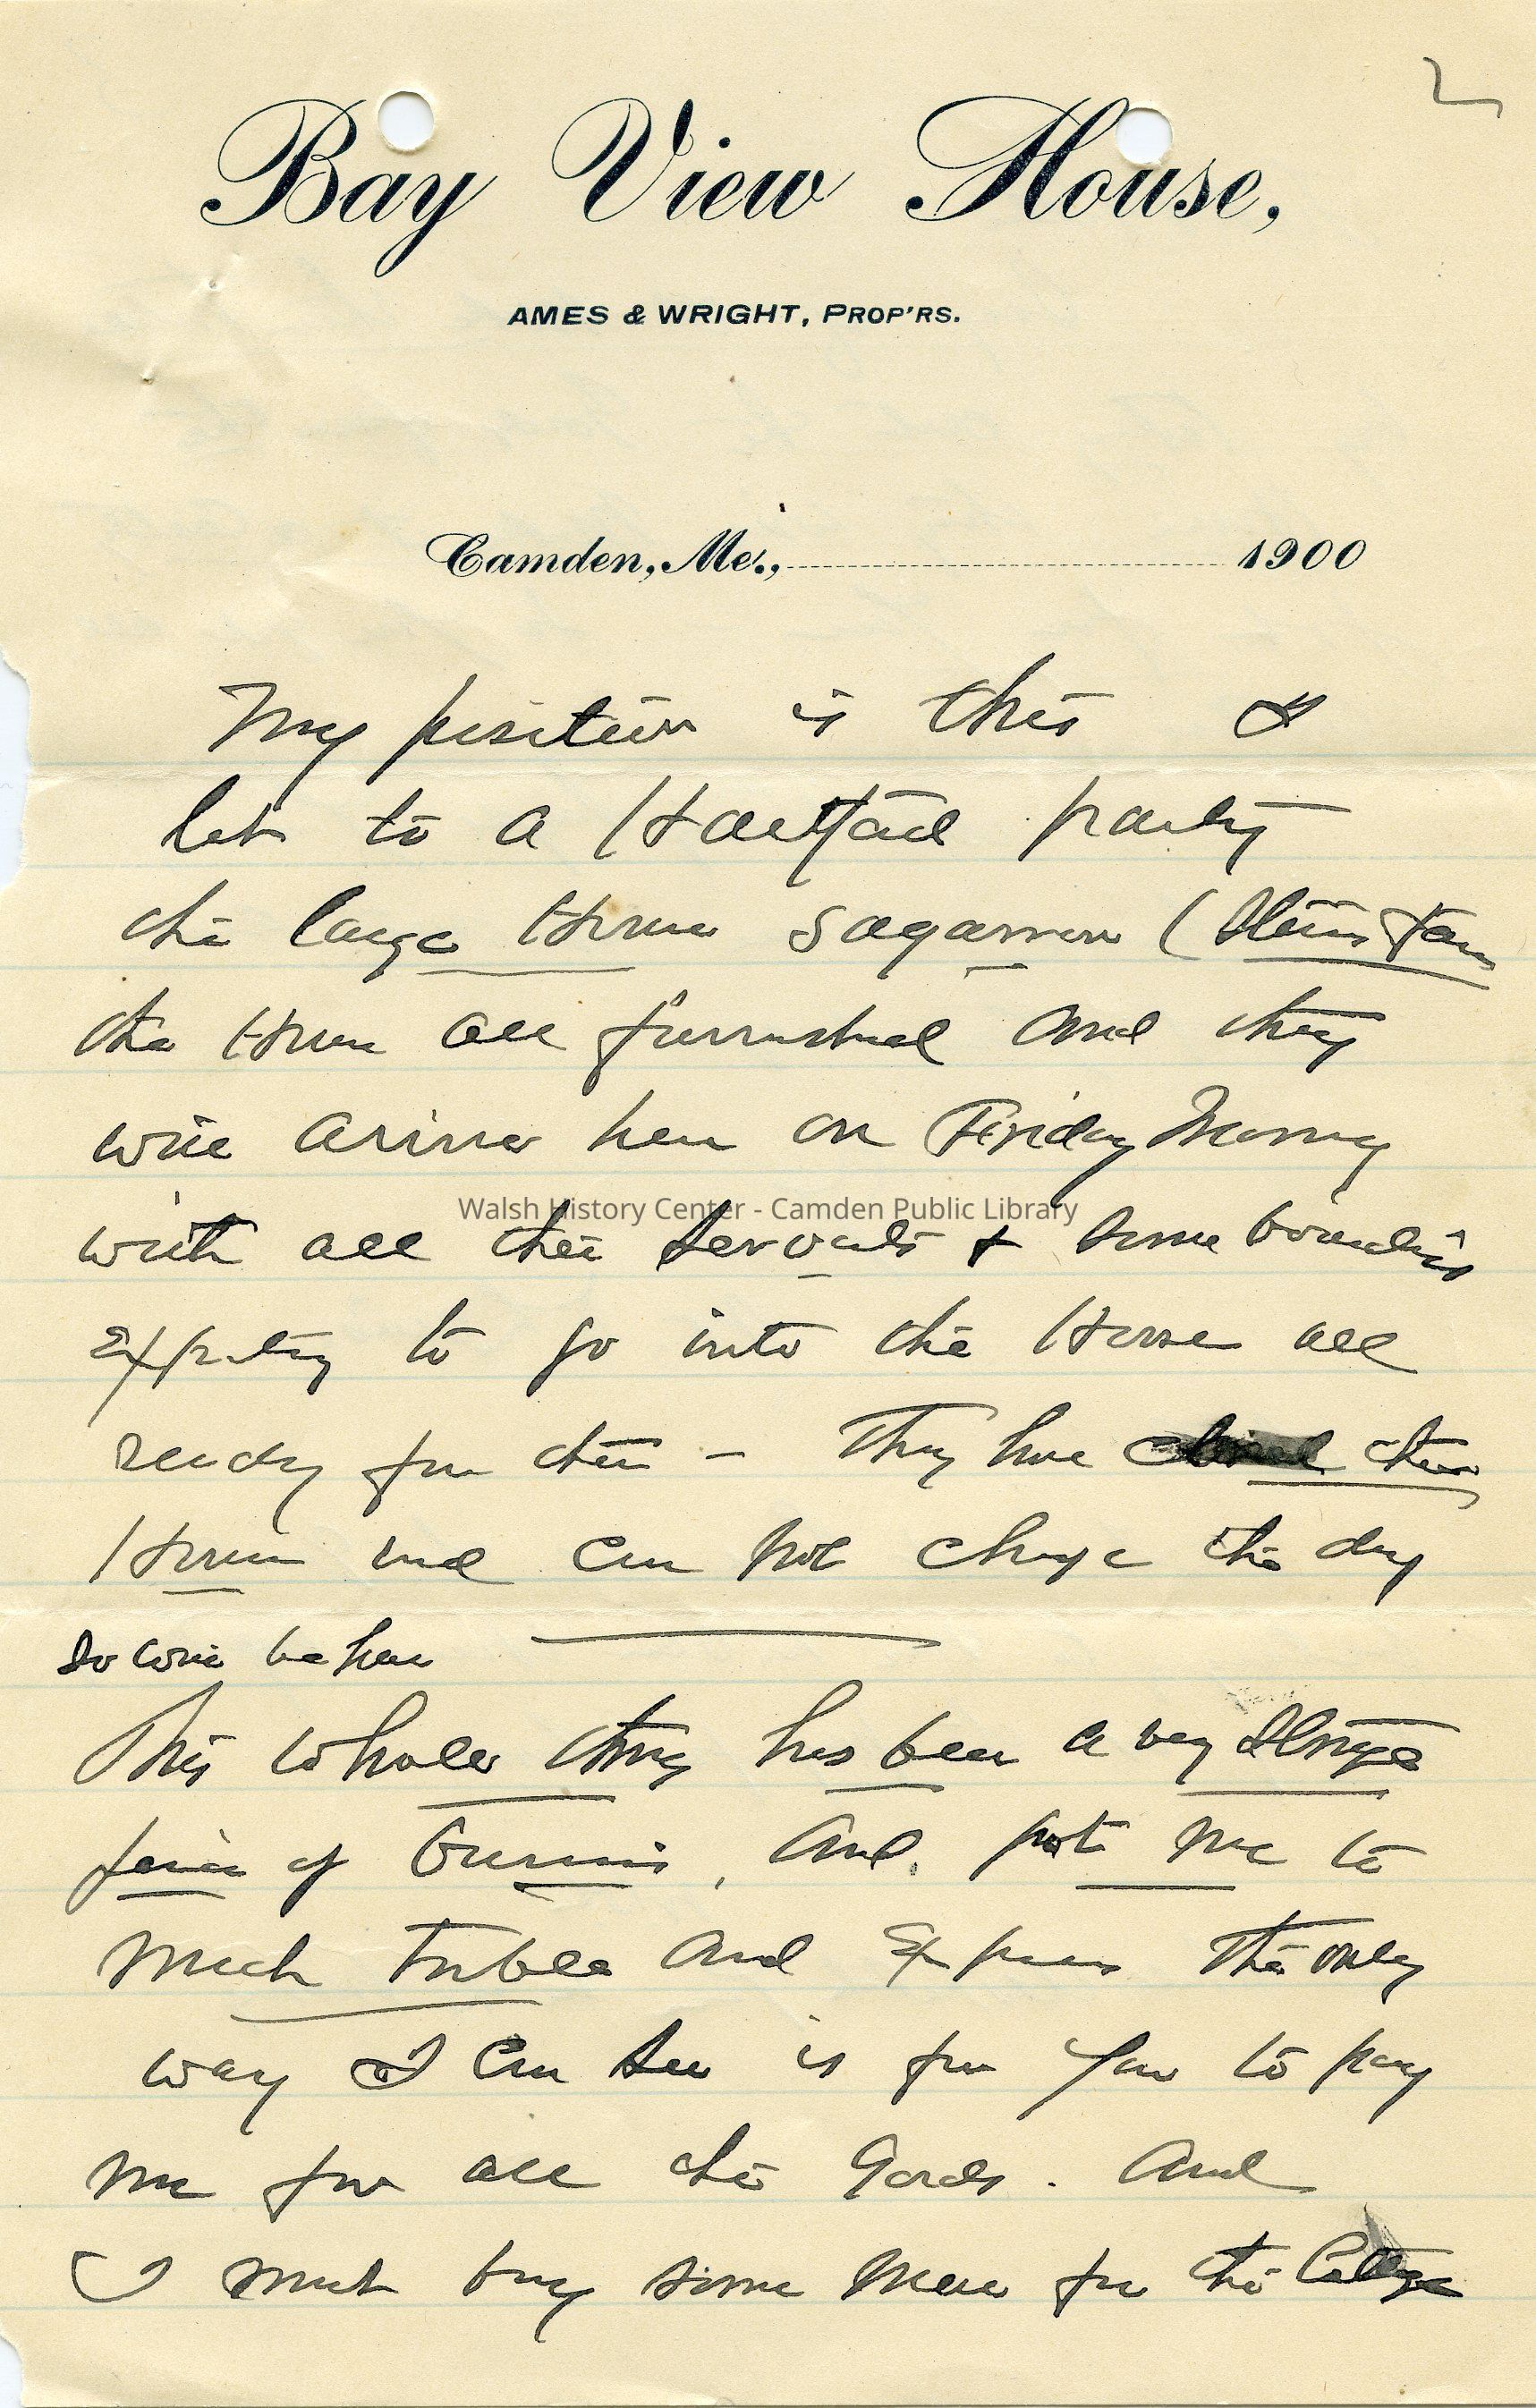 2
Bay View House,
AMES & WRIGHT, PROP'RS.
Camden, Me., 1900
My position is this I
let to a Hartford party
the large House Sagamore (
the House all furnished and they
will arive here on Friday Morning
with all their servants & some
Expecting to go into the House all
ready for them - They have their
House and can not change the day
so will be here
This whole thing has been a very Strange
peice of Business, and, puts me to
much truble and Expense The only
way I can see is for you to pay
me for all the Goods. And
I must buy some more for the Cottage
Walsh History Center - Camden Public Library